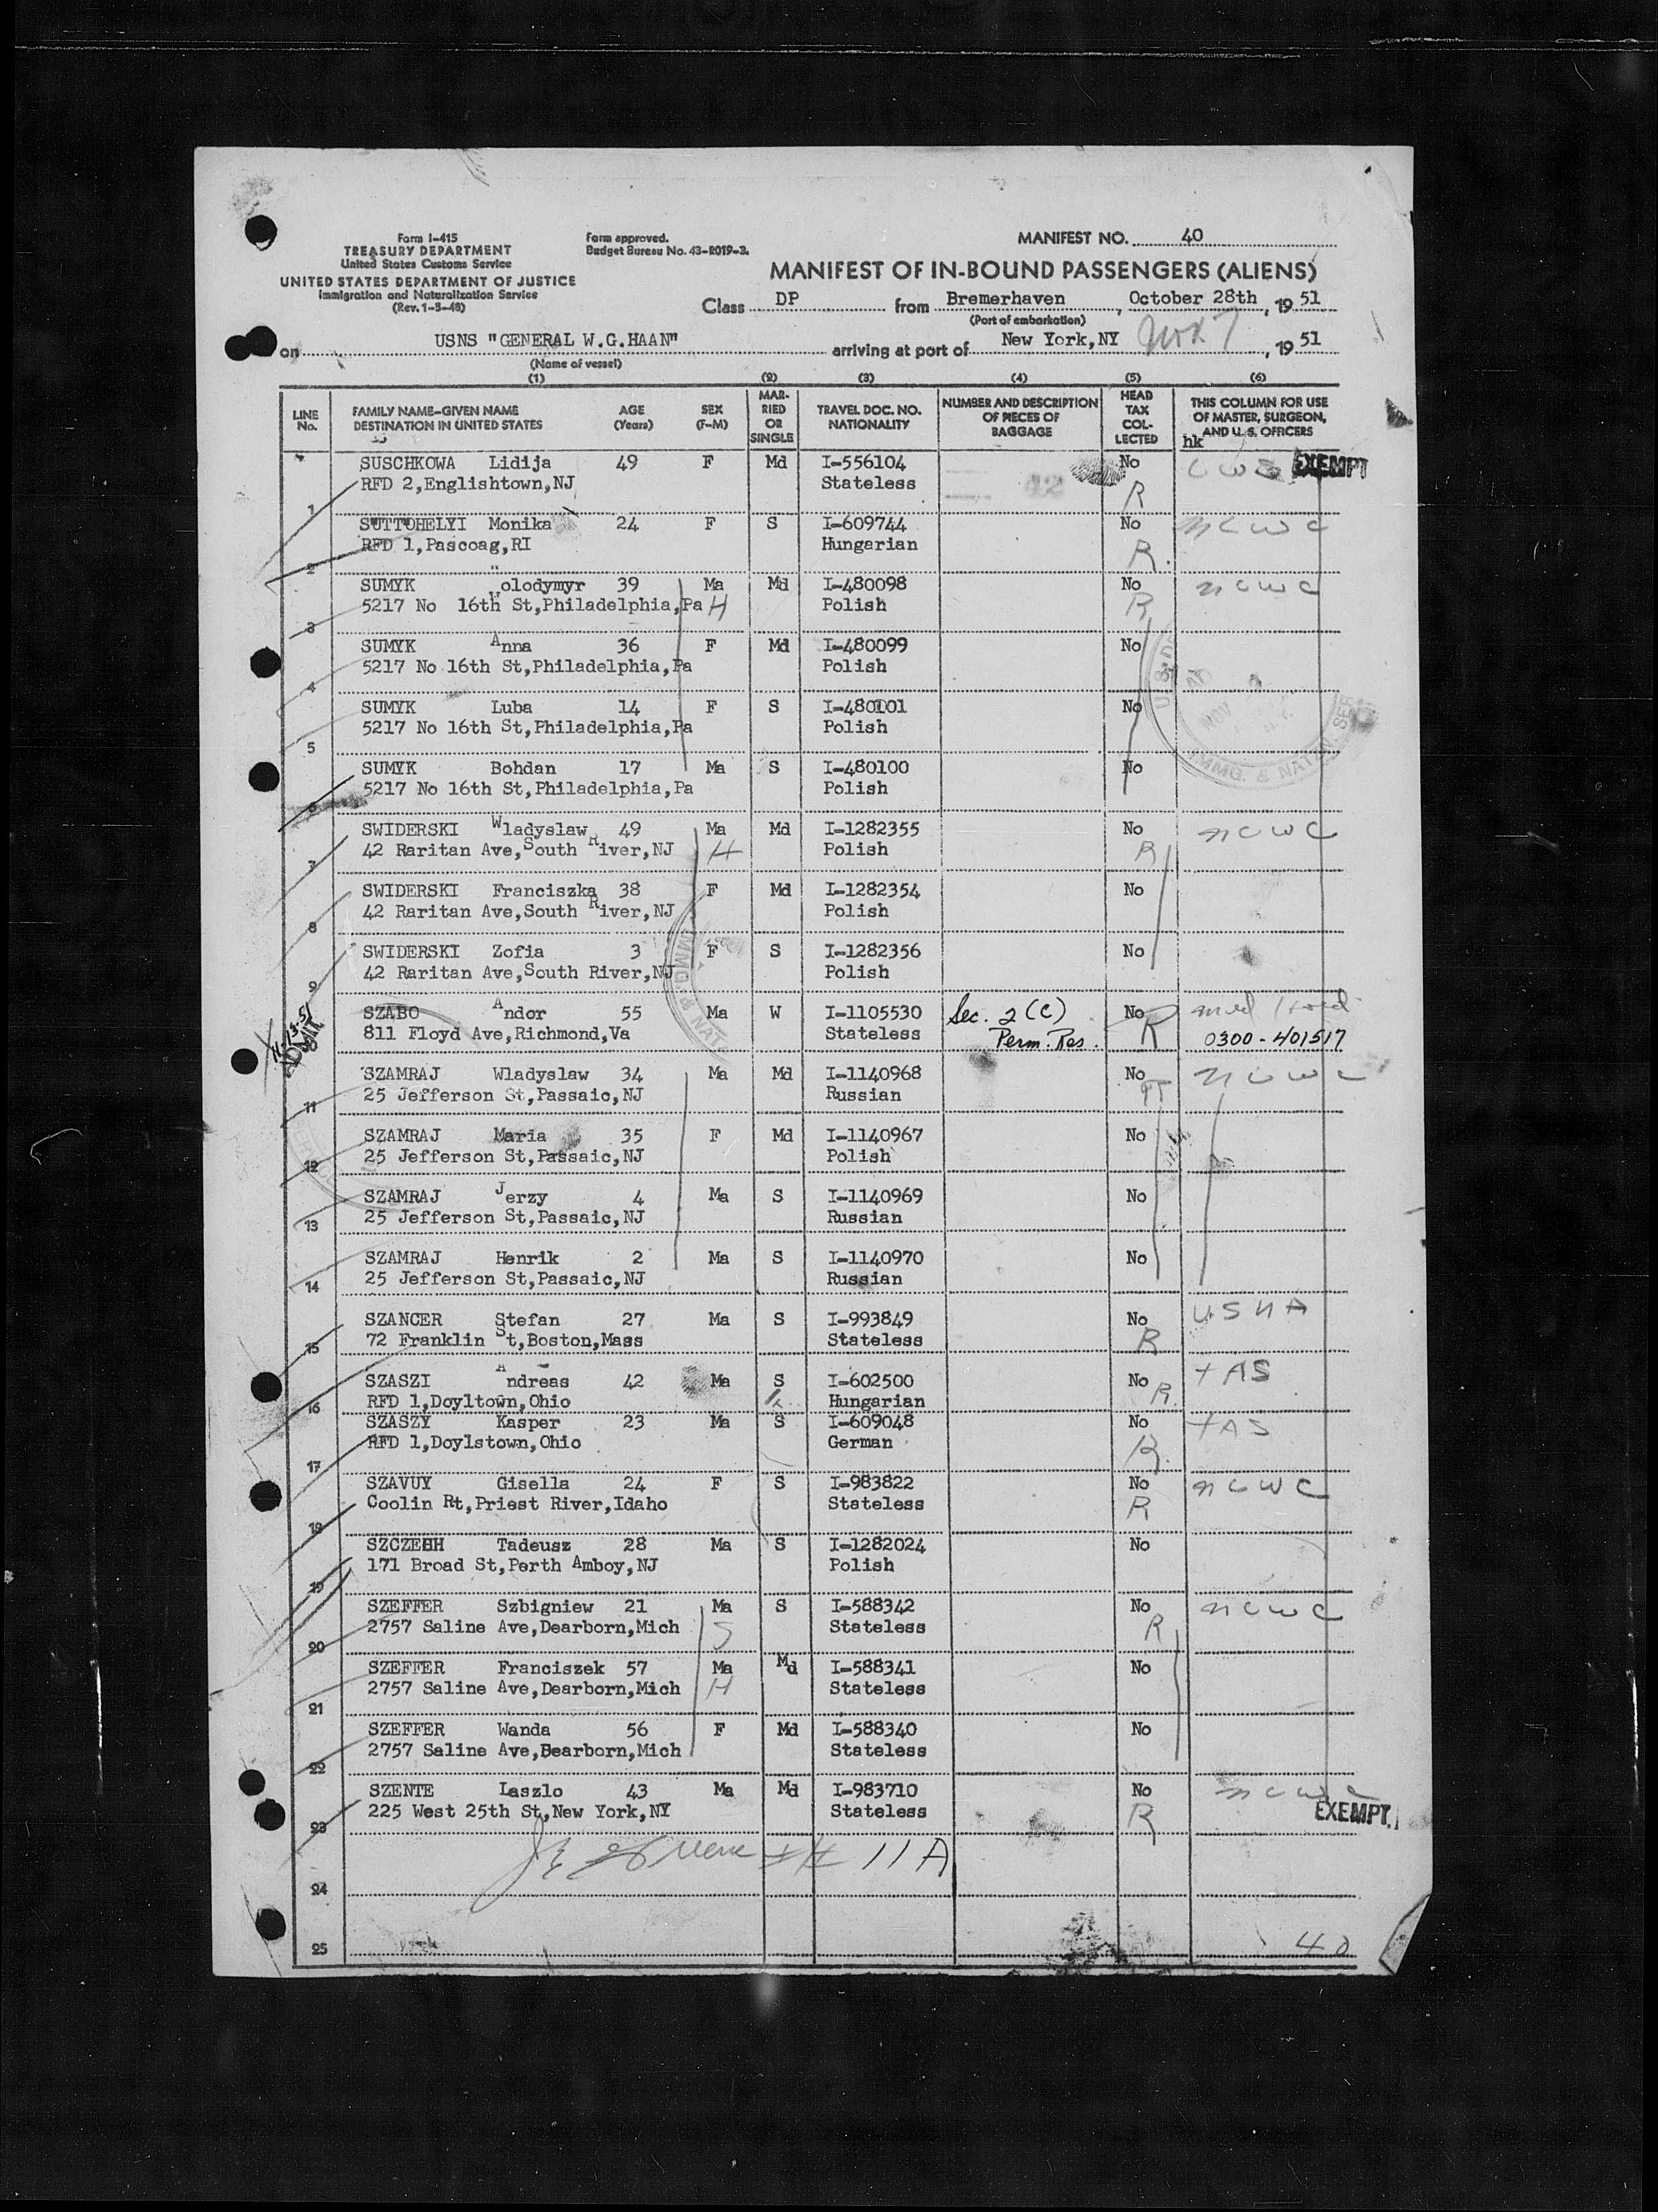 Form I-415
TREASURY DEPARTMENT
United States Customs Service
UNITED STATES DEPARTMENT OF JUSTICE
Immigration and Naturalization Service
(Rev. 1-5-48)
Form approved.
Budget Bureau No. 43-R019-3.
MANIFEST NO. 40
MANIFEST OF IN-BOUND PASSENGERS (ALIENS)
Class DP from Bremerhaven, October 28th, 19 51
(Port of embarkation)
on USNS "GENERAL W.G.HAAN" arriving at port of New York,NY Nov 7, 19 51
(Name of vessel)
(1) (2) (3) (4) (5) (6)
LINE No. FAMILY NAME–GIVEN NAME DESTINATION IN UNITED STATES AGE (Years) SEX (F–M) MARRIED OR SINGLE TRAVEL DOC. NO. NATIONALITY NUMBER AND DESCRIPTION OF PIECES OF BAGGAGE HEAD TAX COLLECTED THIS COLUMN FOR USE OF MASTER, SURGEON, AND U. S. OFFICERS
hk
SUSCHKOWA Lidija 49 F Md I-556104 No CWS EXEMPT
1 RFD 2,Englishtown,NJ Stateless R
SUTTOHELYI Monika 24 F S I-609744 No NCWC
2 RFD 1,Pascoag,RI Hungarian R.
SUMYK Wolodymyr 39 Ma Md I-480098 No NCWC
3 5217 No 16th St,Philadelphia,Pa H Polish R
SUMYK Anna 36 F Md I-480099 No
4 5217 No 16th St,Philadelphia,Pa Polish
SUMYK Luba 14 F S I-480101 No
5 5217 No 16th St,Philadelphia,Pa Polish
SUMYK Bohdan 17 Ma S I-480100 No
6 5217 No 16th St,Philadelphia,Pa Polish
IMMG. & NAT
SWIDERSKI Wladyslaw 49 Ma Md I-1282355 No NCWC
7 42 Raritan Ave,South River,NJ H Polish R
SWIDERSKI Franciszka 38 F Md I-1282354 No
8 42 Raritan Ave,South River,NJ Polish
SWIDERSKI Zofia 3 F S I-1282356 No
9 42 Raritan Ave,South River,NJ Polish
IMMG. & NAT
11-13-51 ADMIT
SZABO Andor 55 Ma W I-1105530 Sec. 2(C) No med
10 811 Floyd Ave,Richmond,Va Stateless Perm. Res. R 0300-401517
SZAMRAJ Wladyslaw 34 Ma Md I-1140968 No NCWC
11 25 Jefferson St,Passaic,NJ Russian R
SZAMRAJ Maria 35 F Md I-1140967 No
12 25 Jefferson St,Passaic,NJ Polish
SZAMRAJ Jerzy 4 Ma S I-1140969 No
13 25 Jefferson St,Passaic,NJ Russian
SZAMRAJ Henrik 2 Ma S I-1140970 No
14 25 Jefferson St,Passaic,NJ Russian
SZANCER Stefan 27 Ma S I-993849 No USNA
15 72 Franklin St,Boston,Mass Stateless R
SZASZI Andreas 42 Ma S I-602500 No TAS
16 RFD 1,Doyltown,Ohio Hungarian R.
SZASZY Kasper 23 Ma S I-609048 No TAS
17 RFD 1,Doylstown,Ohio German R.
SZAVUY Gisella 24 F S I-983822 No NCWC
18 Coolin Rt,Priest River,Idaho Stateless R
SZCZEHH Tadeusz 28 Ma S I-1282024 No
19 171 Broad St,Perth Amboy,NJ Polish
SZEFFER Szbigniew 21 Ma S I-588342 No NCWC
20 2757 Saline Ave,Dearborn,Mich S Stateless R
SZEFFER Franciszek 57 Ma Md I-588341 No
21 2757 Saline Ave,Dearborn,Mich H Stateless
SZEFFER Wanda 56 F Md I-588340 No
22 2757 Saline Ave,Dearborn,Mich Stateless
SZENTE Laszlo 43 Ma Md I-983710 No NCWC
23 225 West 25th St,New York,NY Stateless R EXEMPT.
# 11A
24
25 40